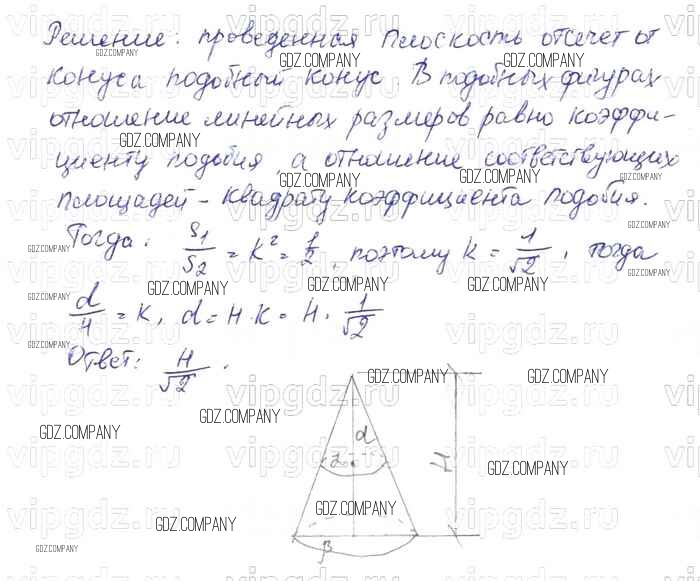 Решение: проведенная плоскость отсечет от
конуса подобный конус. В подобных фигурах
отношение линейных размеров равно коэффи-
циенту подобия, а отношение соответствующих
площадей - квадрату коэффициента подобия.
Тогда: S1/S2 = K² = 1/2, поэтому K = 1/√2, тогда
d/H = K, d = H·K = H · 1/√2
Ответ: H/√2.
d
H
α
β
GDZ.COMPANY
vipgdz.ru